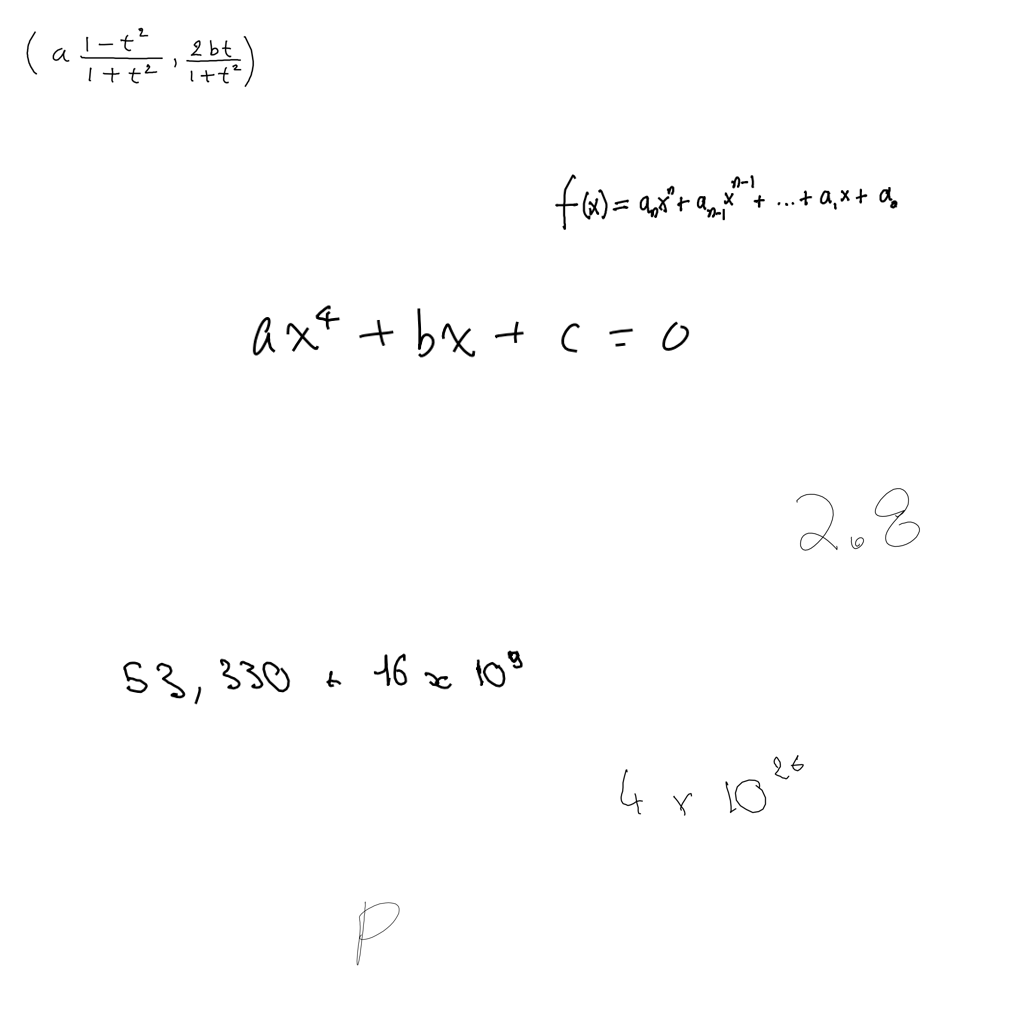 (a \frac{1-t^2}{1+t^2}, \frac{2bt}{1+t^2})
f(x) = a_n x^n + a_{n-1} x^{n-1} + ... + a_1 x + a_0
ax^4 + bx + c = 0
2.8
53,330 + 16 x 10^9
4 x 10^{26}
P